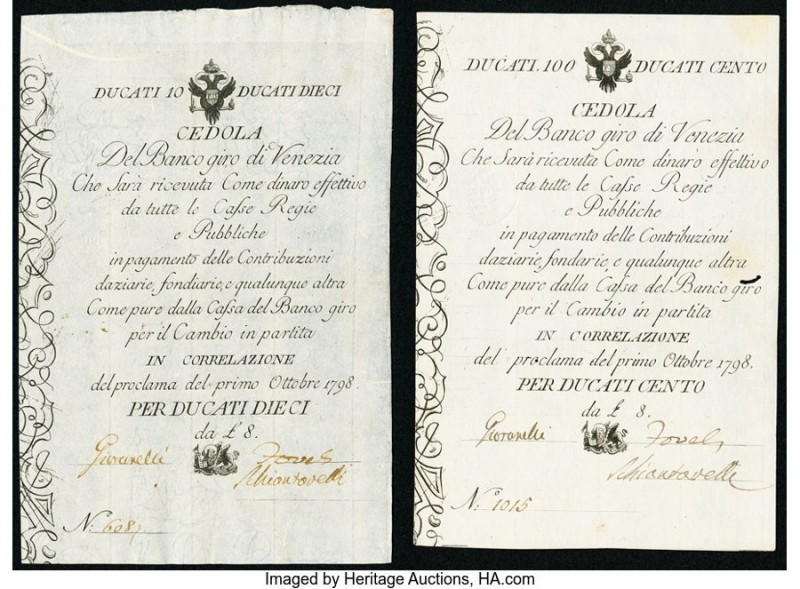 DUCATI 10 DUCATI DIECI
CEDOLA
Del Banco giro di Venezia
Che Sarà ricevuta Come dinaro effettivo
da tutte le Casse Regie
e Pubbliche
in pagamento delle Contribuzioni
daziarie, fondiarie, e qualunque altra
Come pure dalla Cassa del Banco giro
per il Cambio in partita
IN CORRELAZIONE
del proclama del primo Ottobre 1798.
PER DUCATI DIECI
da £ 8.
Giovanelli
N.
DUCATI. 100 DUCATI CENTO
CEDOLA
Del Banco giro di Venezia
Che Sarà ricevuta Come dinaro effettivo
da tutte le Casse Regie
e Pubbliche
in pagamento delle Contribuzioni
daziarie, fondarie, e qualunque altra
Come pure dalla Cassa del Banco giro
per il Cambio in partita
IN CORRELAZIONE
del proclama del primo Ottobre 1798.
PER DUCATI CENTO
da £ 8.
Giovanelli
N.º 1015
Imaged by Heritage Auctions, HA.com